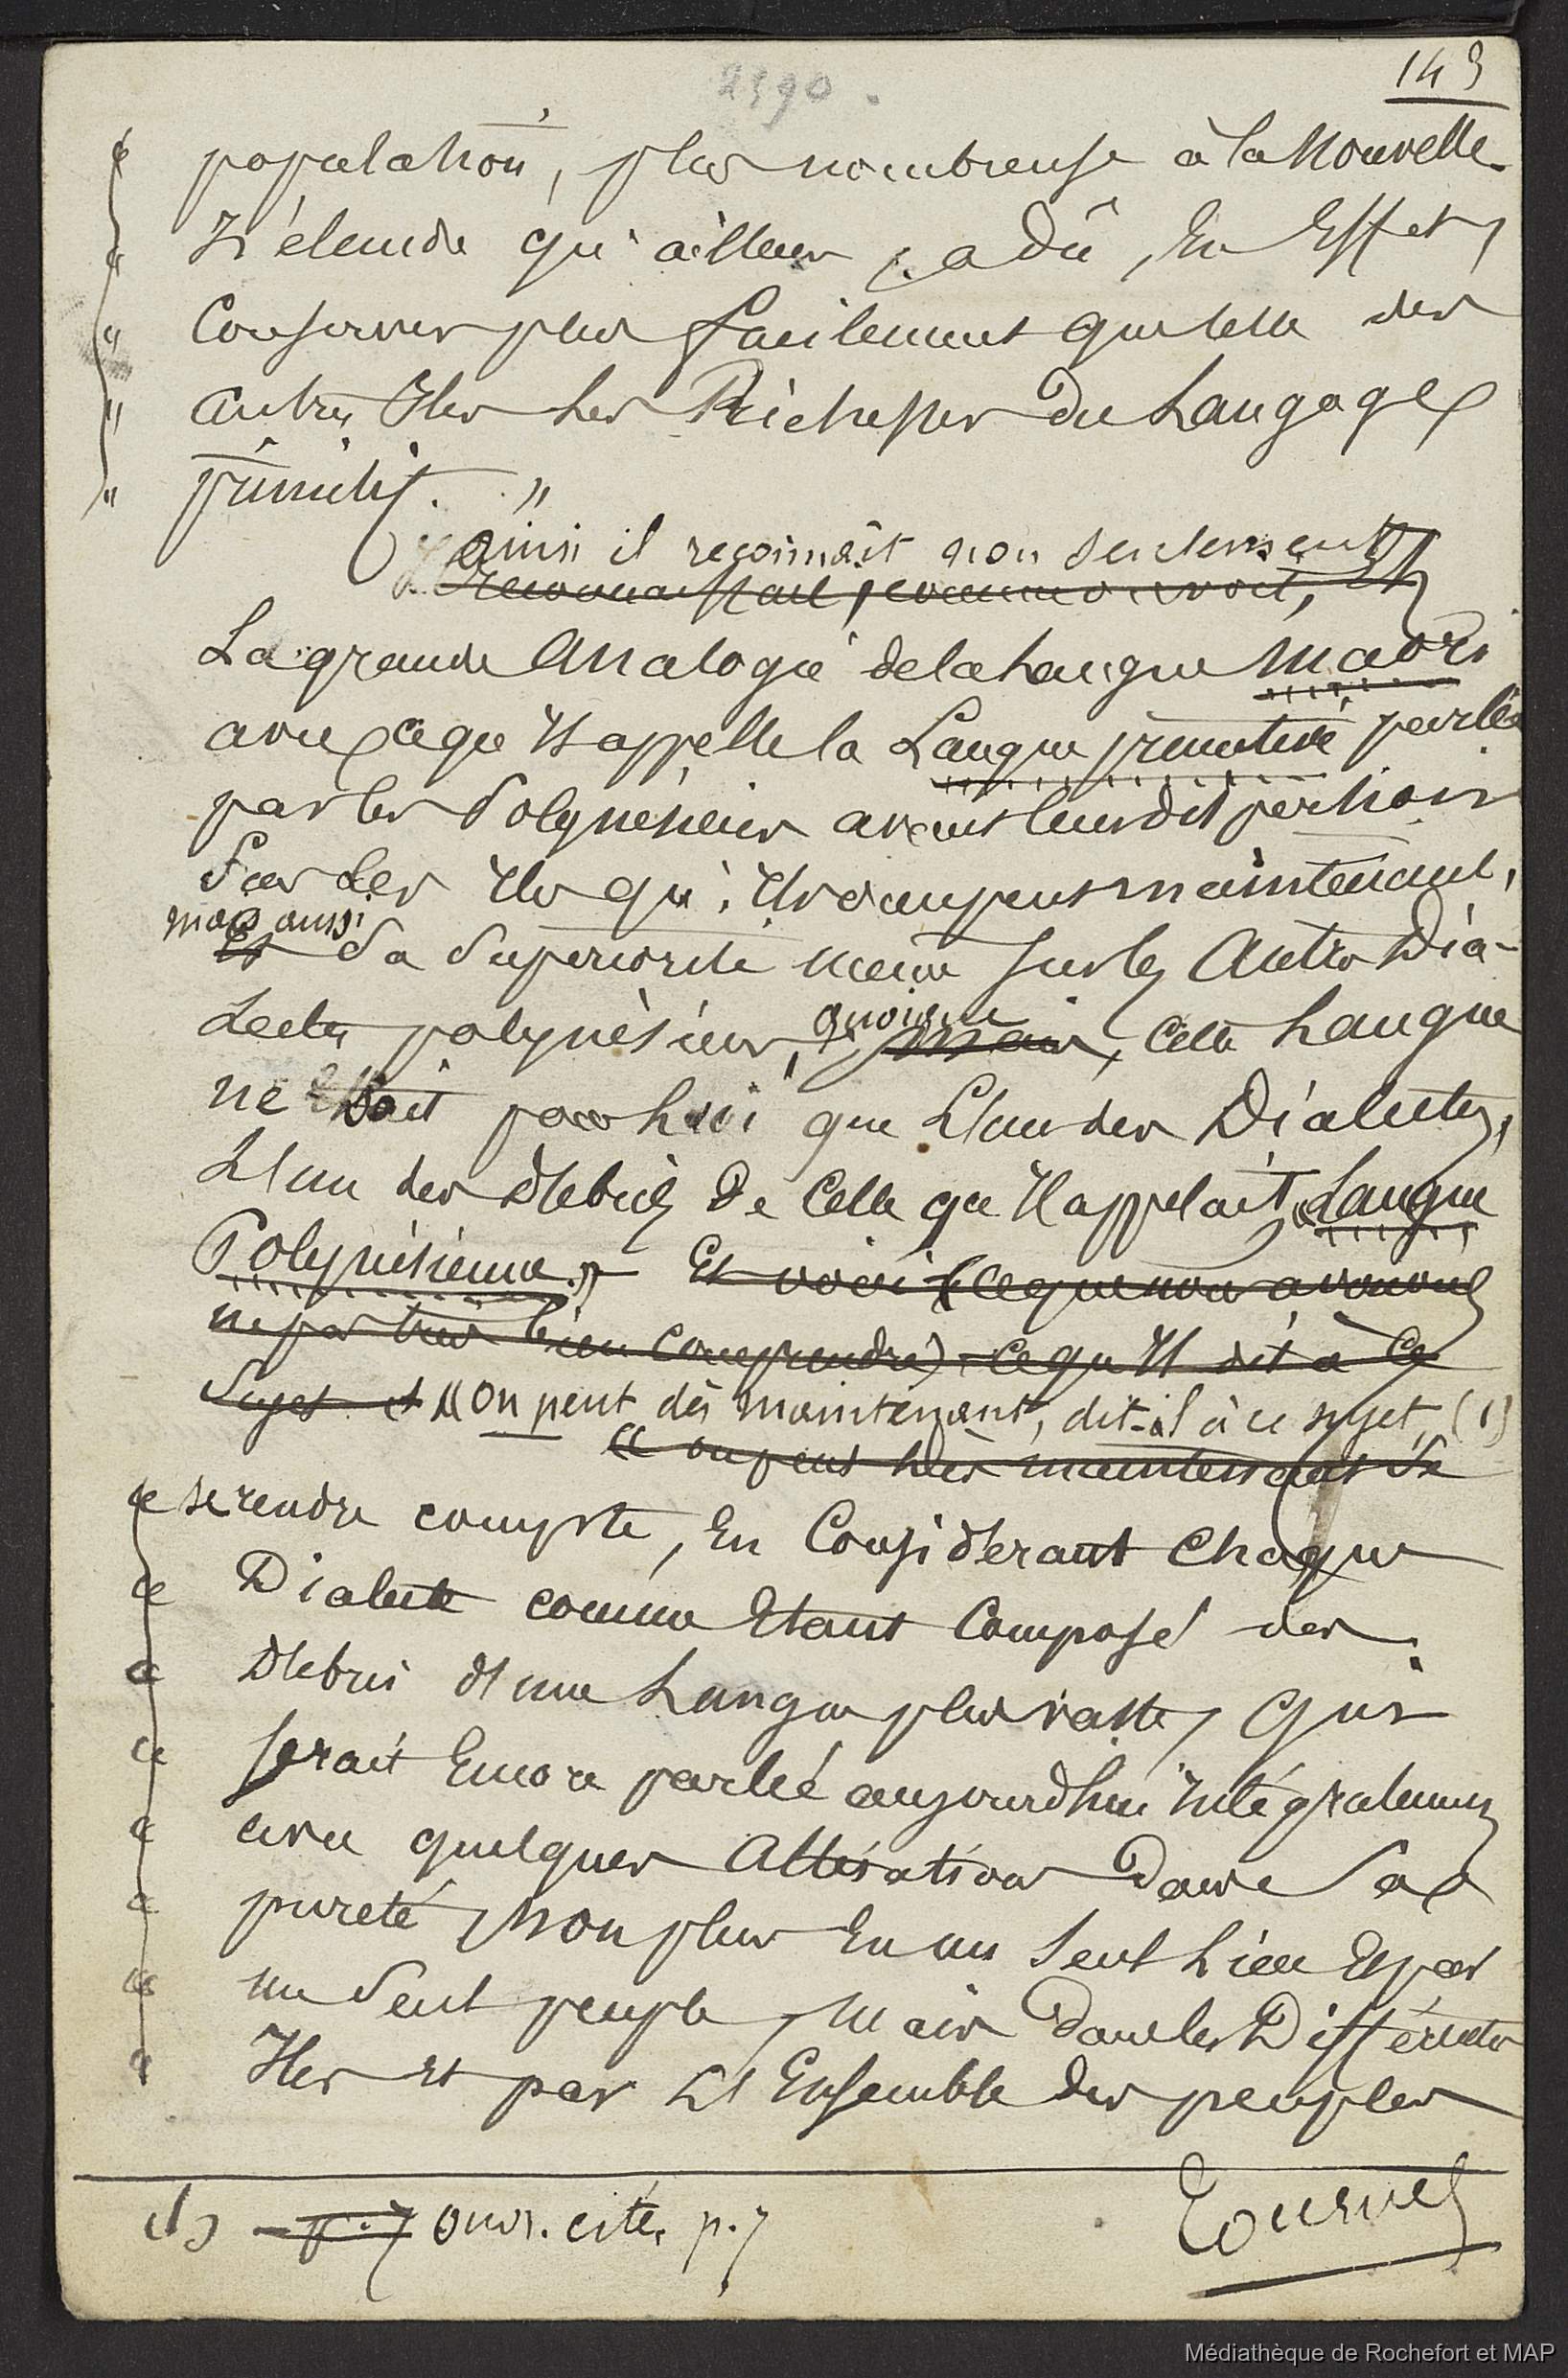 2390.
143
« population, plus nombreuse à la Nouvelle-
« Zélande qu'ailleurs, a dû, En Effet,
« Conserver plus facilement que celle des
« autres Iles Les Richesses du Langage
« primitif. »
ainsi il reconnaît non seulement
Reconnaissait, comme on voit, Et
La grande Analogie de la Langue Maori
avec ce qu'Il appelle la Langue primitive parlée
par les Polynésiens avant leur dispersion
Sur Les Iles qu'Ils occupent maintenant,
mais aussi
Et Sa Supériorité même sur les Autres Dia-
Lectes polynésiens, quoique
Mais, cette Langue
ne soit pour Lui que L'un des Dialectes,
L'un des débris de Celle qu'Il appelait « Langue
Polynésienne. » Et voici (ce que nous avouons
ne pas très bien comprendre) ce qu'Il dit à ce
Sujet : « On peut dès maintenant, dit-il à ce sujet, (1)
« on peut dès maintenant se
« se rendre compte, En Considérant Chaque
« Dialecte comme Etant Composé des
« débris d'une Langue plus vaste, Qui
« serait Encore parlée aujourd'hui intégralement
« avec quelques Altérations dans Sa
« pureté, Non plus En un seul Lieu Et par
« un Seul peuple, Mais dans les Différentes
« Iles et par L'Ensemble des peuples
(1) – p. 7 Ouvr. cité, p. 7
Tournez
Médiathèque de Rochefort et MAP